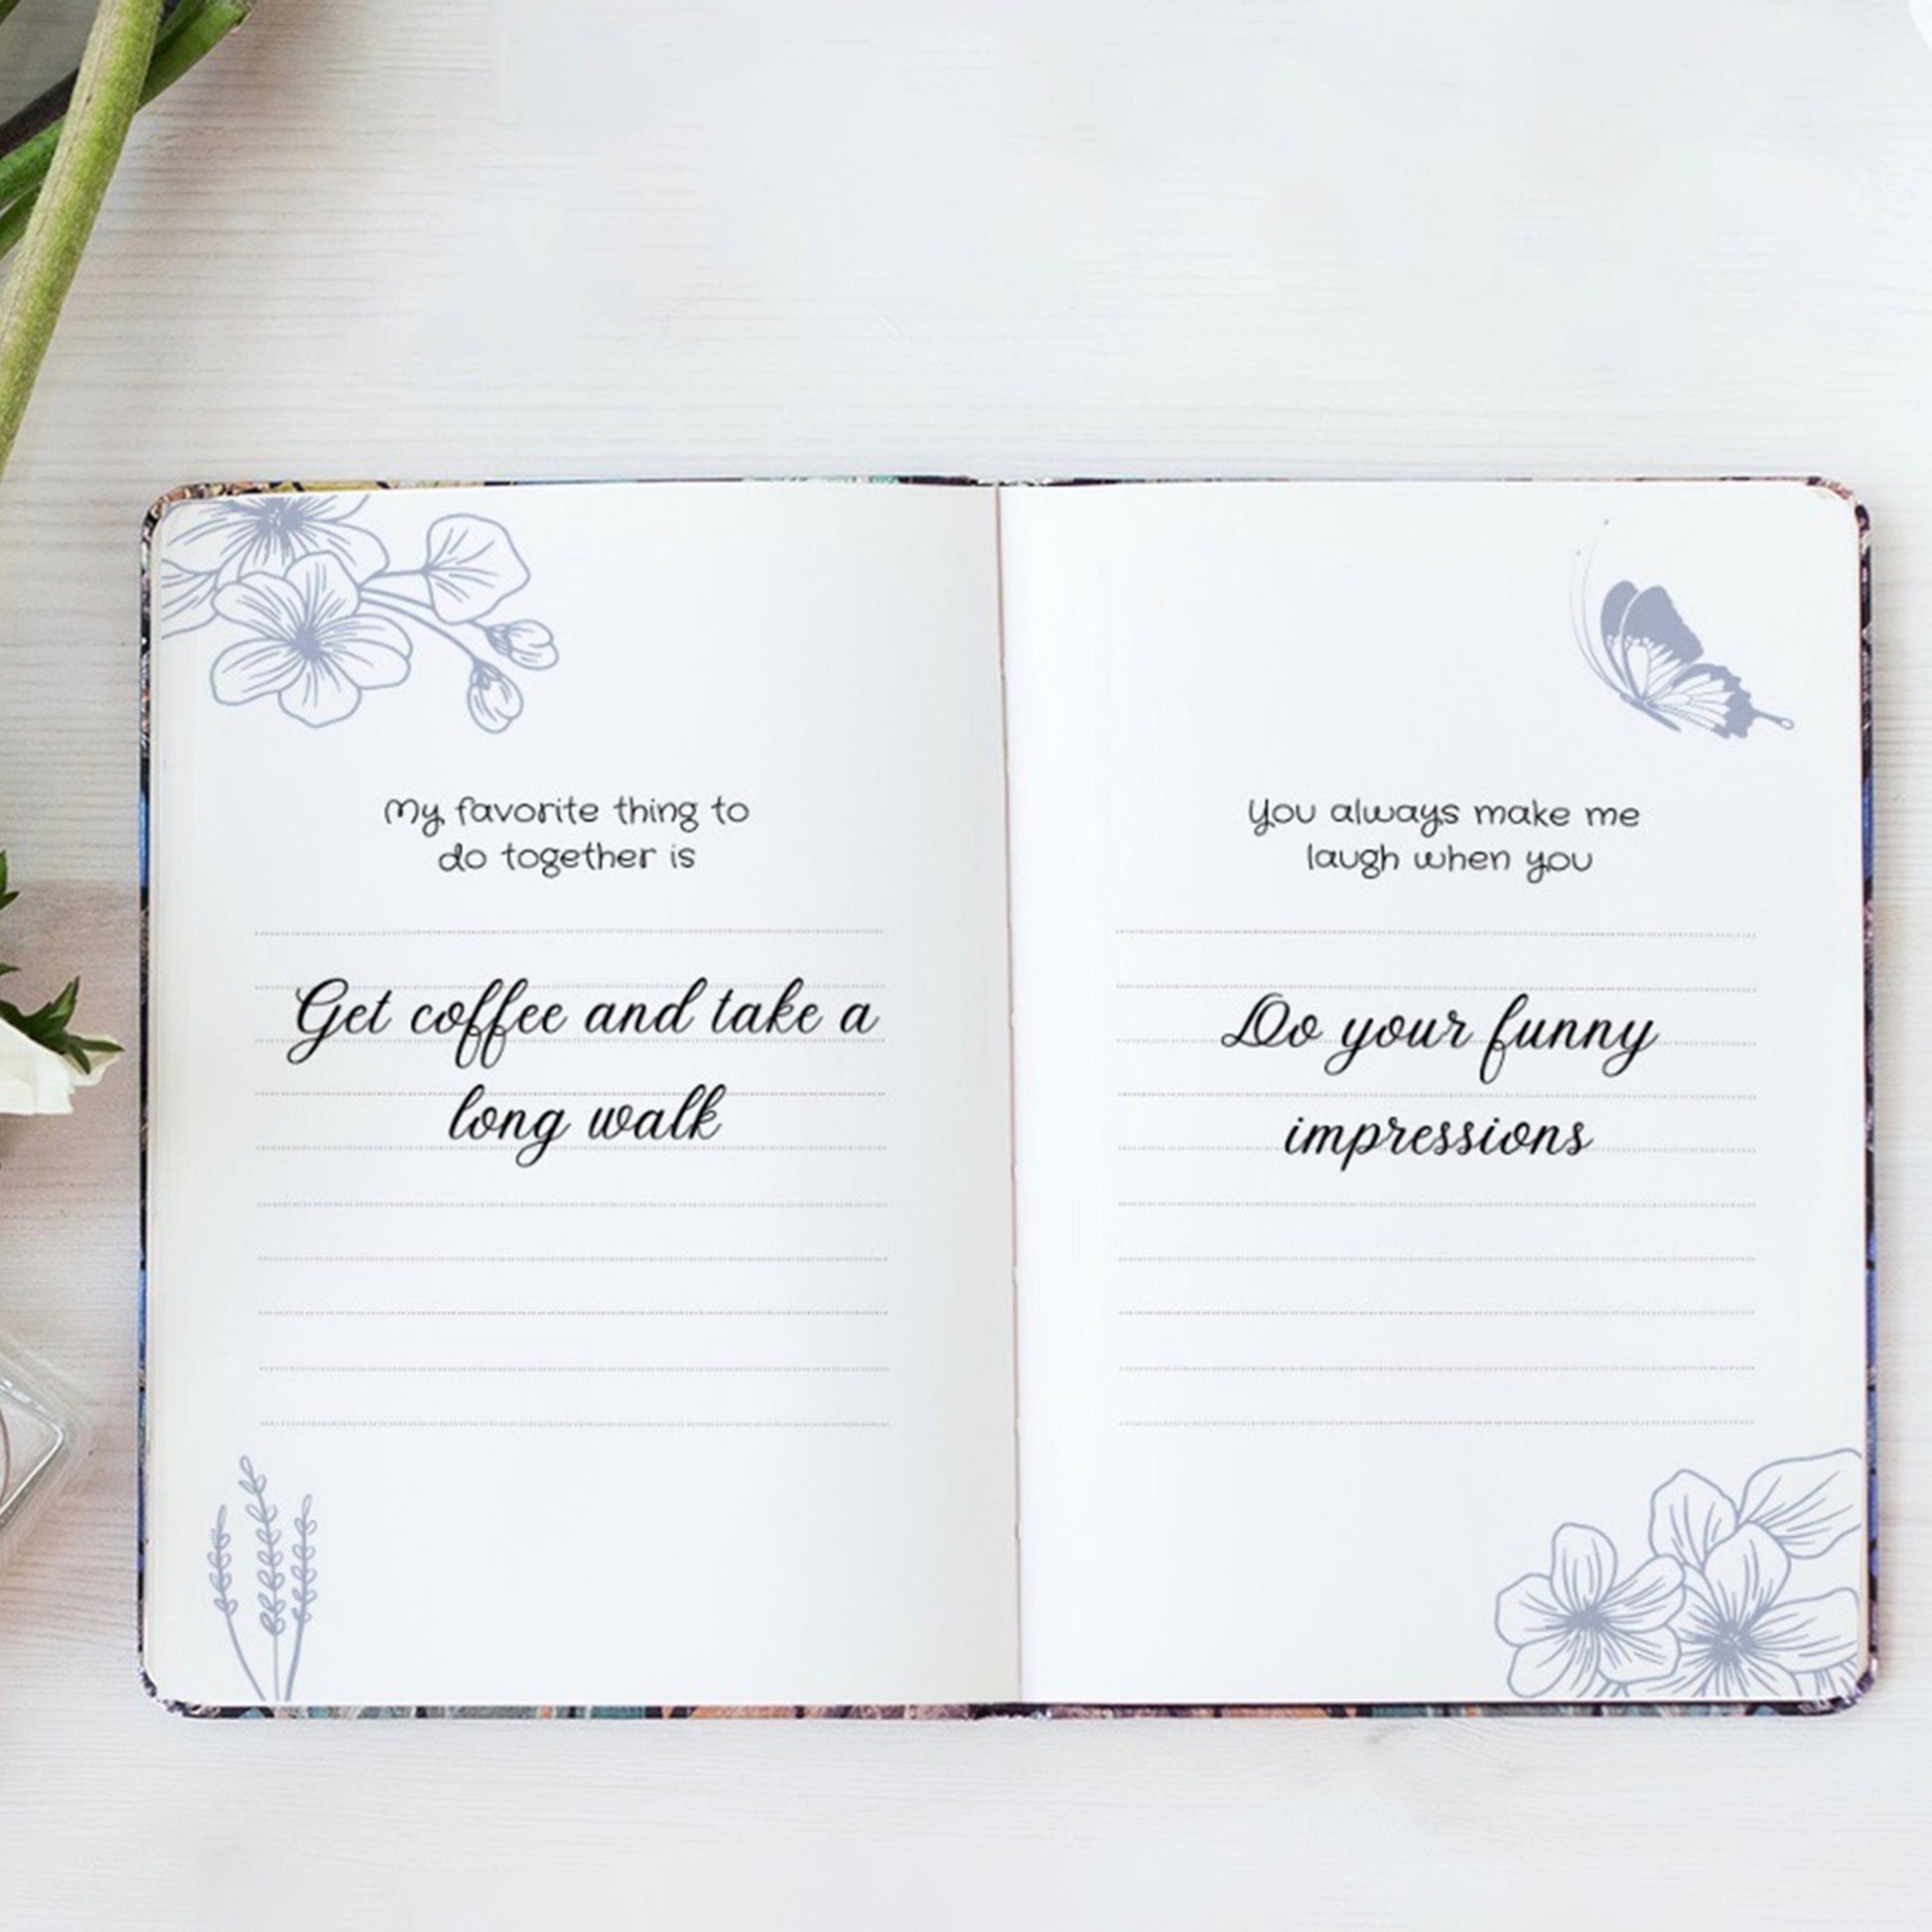 My favorite thing to
do together is
Get coffee and take a
long walk
You always make me
laugh when you
Do your funny
impressions